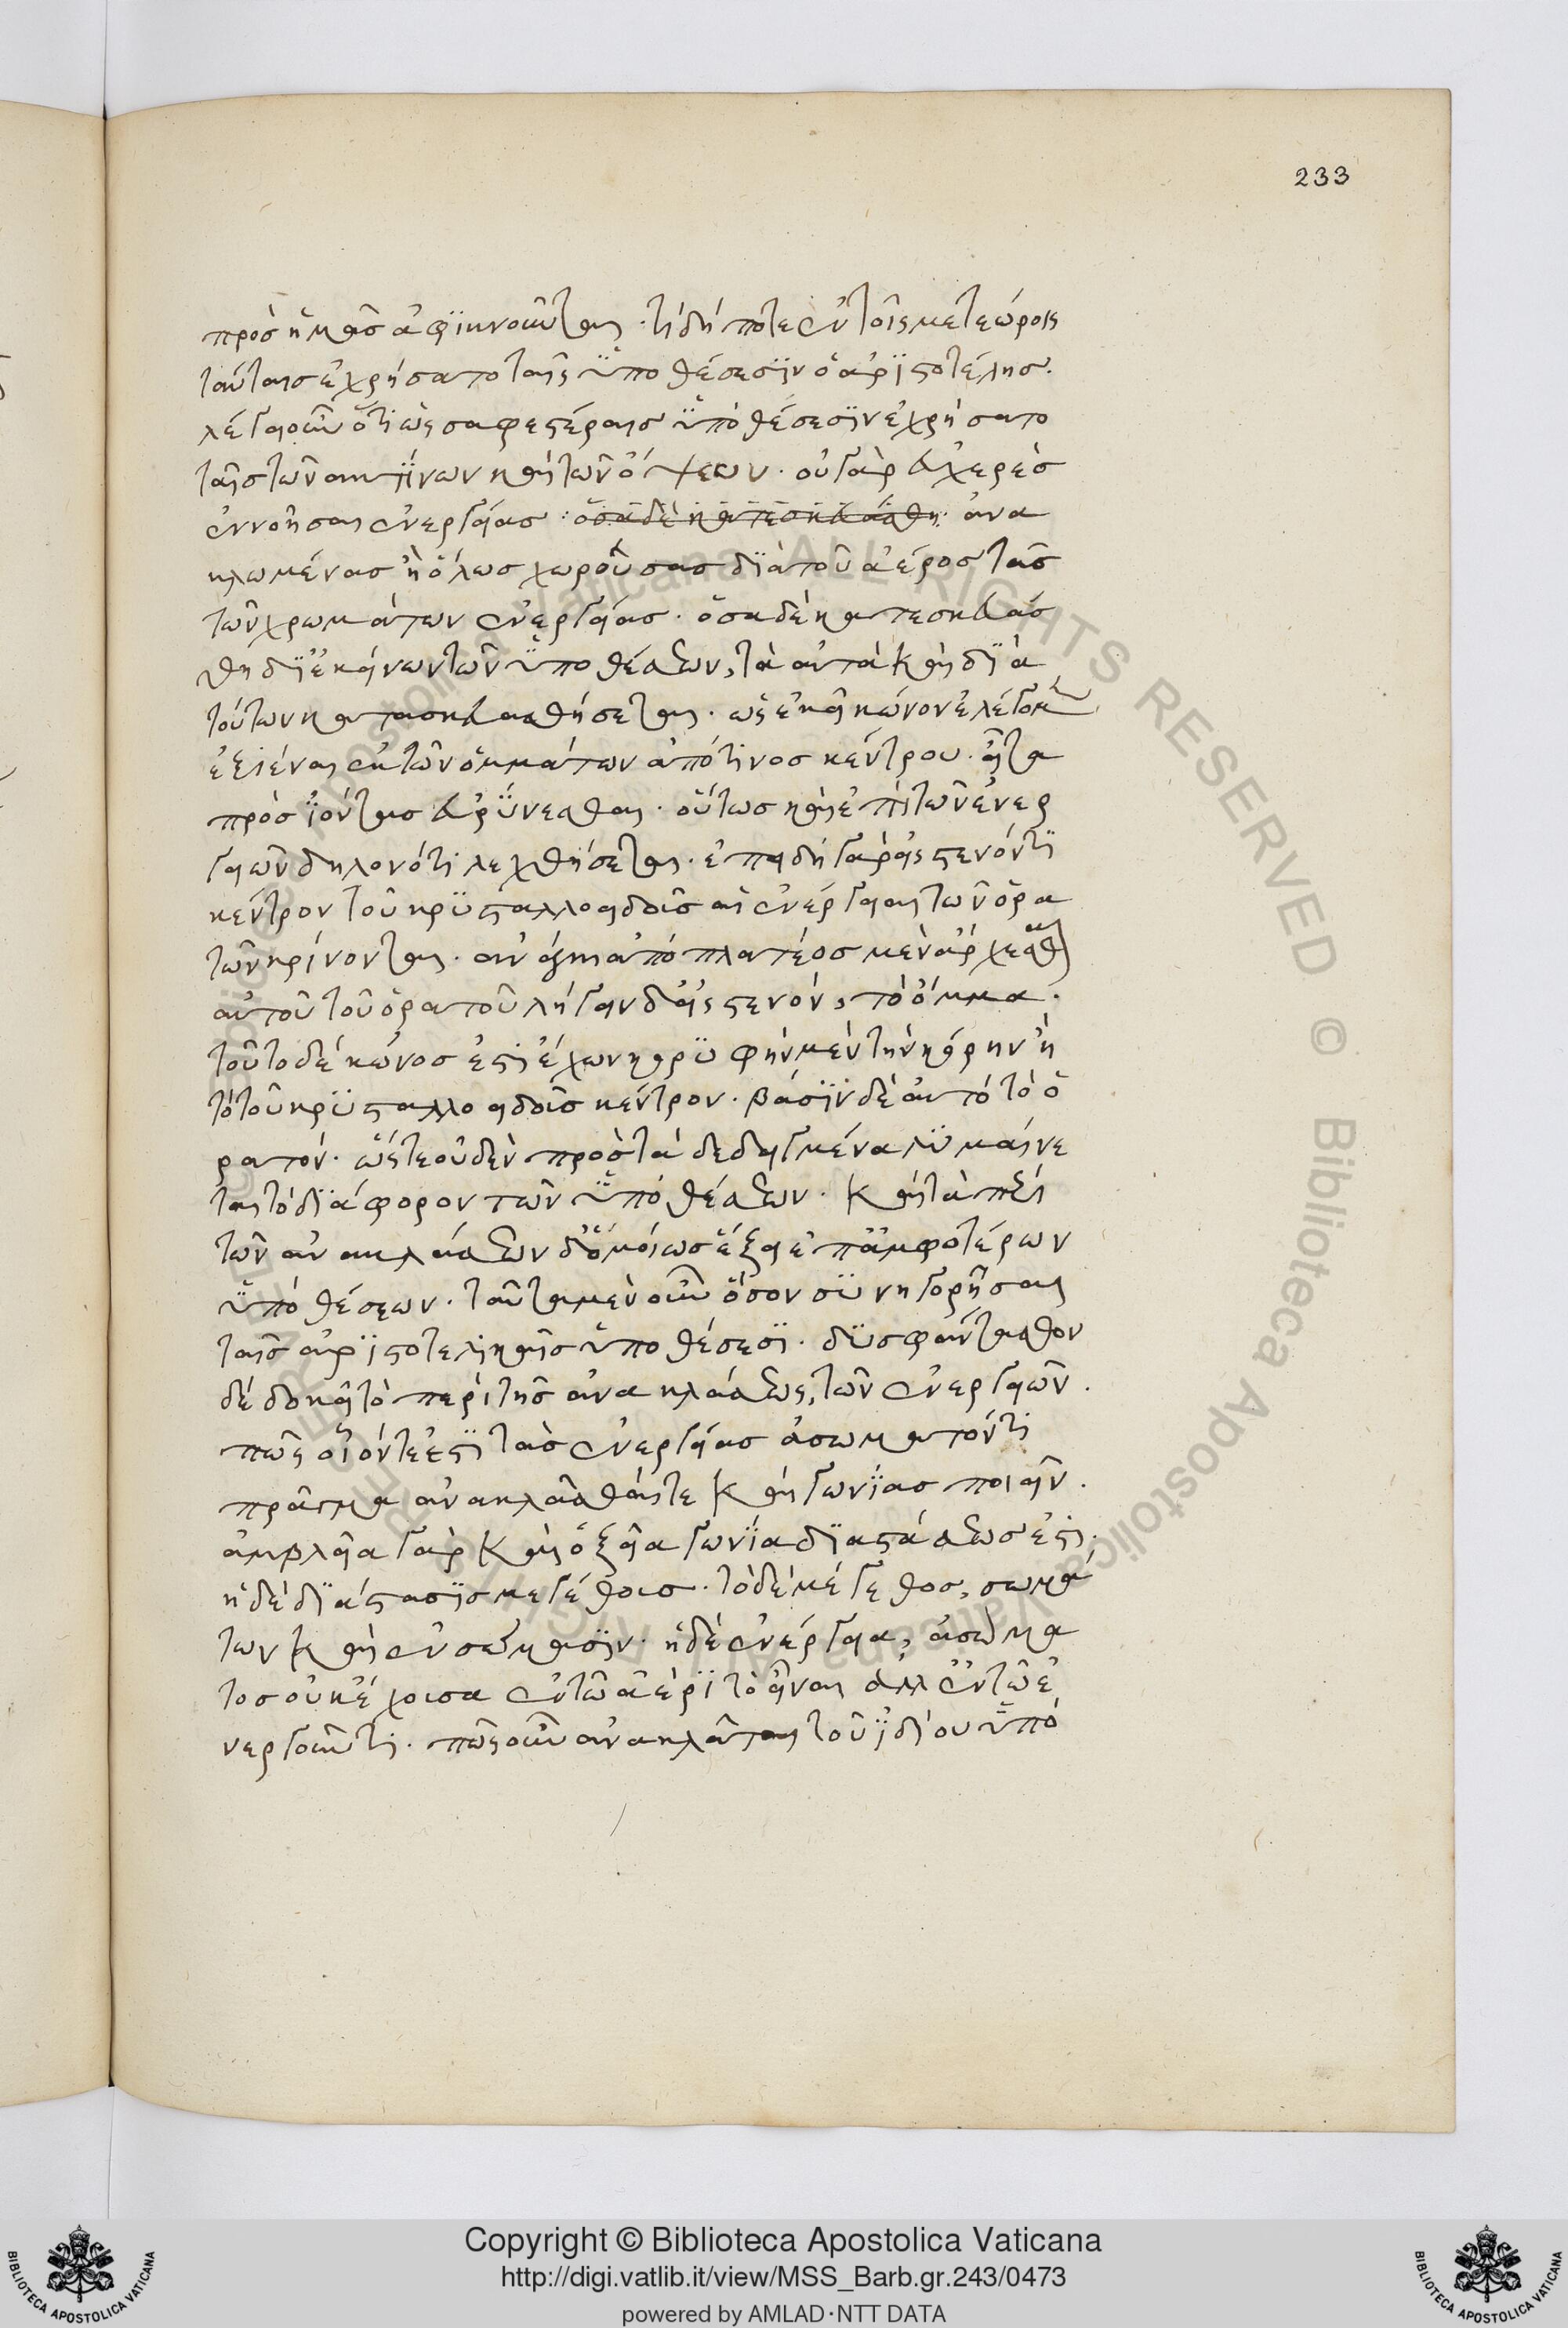 233
πρὸσ ἡμᾶσ ἀφϊκνοῦνται · τί δή ποτε ἐν τοῖς μετεώροις
ταύταισ ἐχρήσατο ταῖς ὑποθέσεσϊν ὁ ἀρϊστοτέλησ·
λέγω οὖν ὅτι ὡς σαφεστέραισ ὑποθέσεσϊν ἐχρήσατο
ταῖσ τῶν ἀκτΐνων καὶ τῶν ὄψεων · οὐ γὰρ εὐχερὲσ
ἐννοῆσαι ἐνεργείασ · ὅσα δὲ κατεσκευάσθη · ἀνα
κλωμένασ ἢ ὅλωσ χωρούσασ δϊὰ τοῦ ἀέροσ τὰσ
τῶν χρωμάτων ἐνεργείασ · ὅσα δὲ κατεσκευάσ
θη δϊ' ἐκείνων τῶν ὑποθέσεων, τὰ αὐτὰ καὶ δϊὰ
τούτων κατασκευασθήσεται · ὡς ἐκεῖ κώνον ἐλέγομεν
ἐξιέναι ἐκ τῶν ὀμμάτων ἀπό τινοσ κέντρου · εἶτα
προσϊόντασ εὐρΰνεσθαι · οὕτωσ καὶ ἐπὶ τῶν ἐνερ
γειῶν δηλονότι λεχθήσεται · ἐπειδὴ γὰρ εἰς στενόν τϊ
κέντρον τοῦ κρϋσταλλοειδοῦσ αἱ ἐνέργειαι τῶν ὁρα
τῶν κρίνονται · ἀνάγκη ἀπὸ πλατέοσ μὲν ἄρχεσθαι
αὐτοῦ τοῦ ὁρατοῦ λήγειν δ' εἰς στενόν, τὸ ὄμμα ·
τοῦτο δὲ κῶνοσ ἐστὶ ἔχων κορϋφὴν μὲν τὴν κόρην ἢ
τὸ τοῦ κρϋσταλλοειδοῦσ κέντρον · βάσϊν δὲ αὐτὸ τὸ ὁ
ρατόν · ὥστε οὐδὲν πρὸσ τὰ δεδειγμένα λϋμαίνε
ται τὸ δϊάφορον τῶν ὑποθέσεων · καὶ τὰ περὶ
τῶν ἀνακλάσεων δ' ὁμοίωσ ἕξει ἐπ' ἀμφοτέρων
ὑποθέσεων · ταῦτα μὲν οὖν ὅσον σϋνηγορῆσαι
ταῖσ ἀρϊστοτελικαῖσ ὑποθέσεσϊ · δϋσφάνταστον
δέ δοκεῖ τὸ περὶ τῆσ ἀνακλάσεως, τῶν ἐνεργειῶν ·
πῶς οἷόν τε ἐστϊ τὰσ ἐνεργείασ ἀσώματόν τι
πρᾶγμα ἀνακλᾶσθαί τε καὶ γωνϊασ ποιεῖν ·
ἀμβλεῖα γὰρ καὶ ὀξεῖα γωνϊα δϊαστάσεωσ ἐστι ·
ἡ δὲ δϊάστασϊσ μεγέθουσ · τὸ δὲ μέγεθοσ, σωμά
των καὶ ἐν σώμασϊν · ἡ δὲ ἐνέργεια, ἀσώμα
τοσ οὐκ ἔχουσα ἐν τῶ ἀέρϊ τὸ εἶναι ἀλλ' ἐν τῶ ἐ
νεργοῦντι · πῶς οὖν ἀνακλᾶται τοῦ ἰδίου ὑπο
Copyright © Biblioteca Apostolica Vaticana
http://digi.vatlib.it/view/MSS_Barb.gr.243/0473
powered by AMLAD·NTT DATA